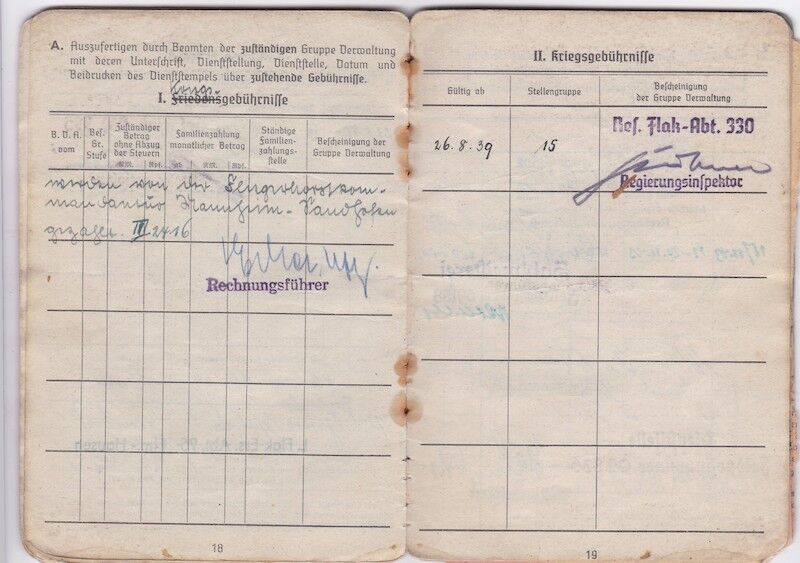 A. Auszufertigen durch Beamten der zuständigen Gruppe Verwaltung
mit deren Unterschrift, Dienststellung, Dienststelle, Datum und
Beidrucken des Dienststempels über zustehende Gebührnisse.
I. Friedensgebührnisse
B. D. A. vom
Bes. Gr. Stufe
Zuständiger Betrag ohne Abzug der Steuern
RM. Rpf.
Familienzahlung monatlicher Betrag
ab RM. Rpf.
Ständige Familien-zahlungs-stelle
Bescheinigung der Gruppe Verwaltung
werden von der Fliegerhorstkom-
mandantur Mannheim-Sandhofen
gezahlt. III 2416
Rechnungsführer
18
II. Kriegsgebührnisse
Gültig ab
Stellengruppe
Bescheinigung
der Gruppe Verwaltung
26.8.39
15
Res. Flak-Abt. 330
Regierungsinspektor
19